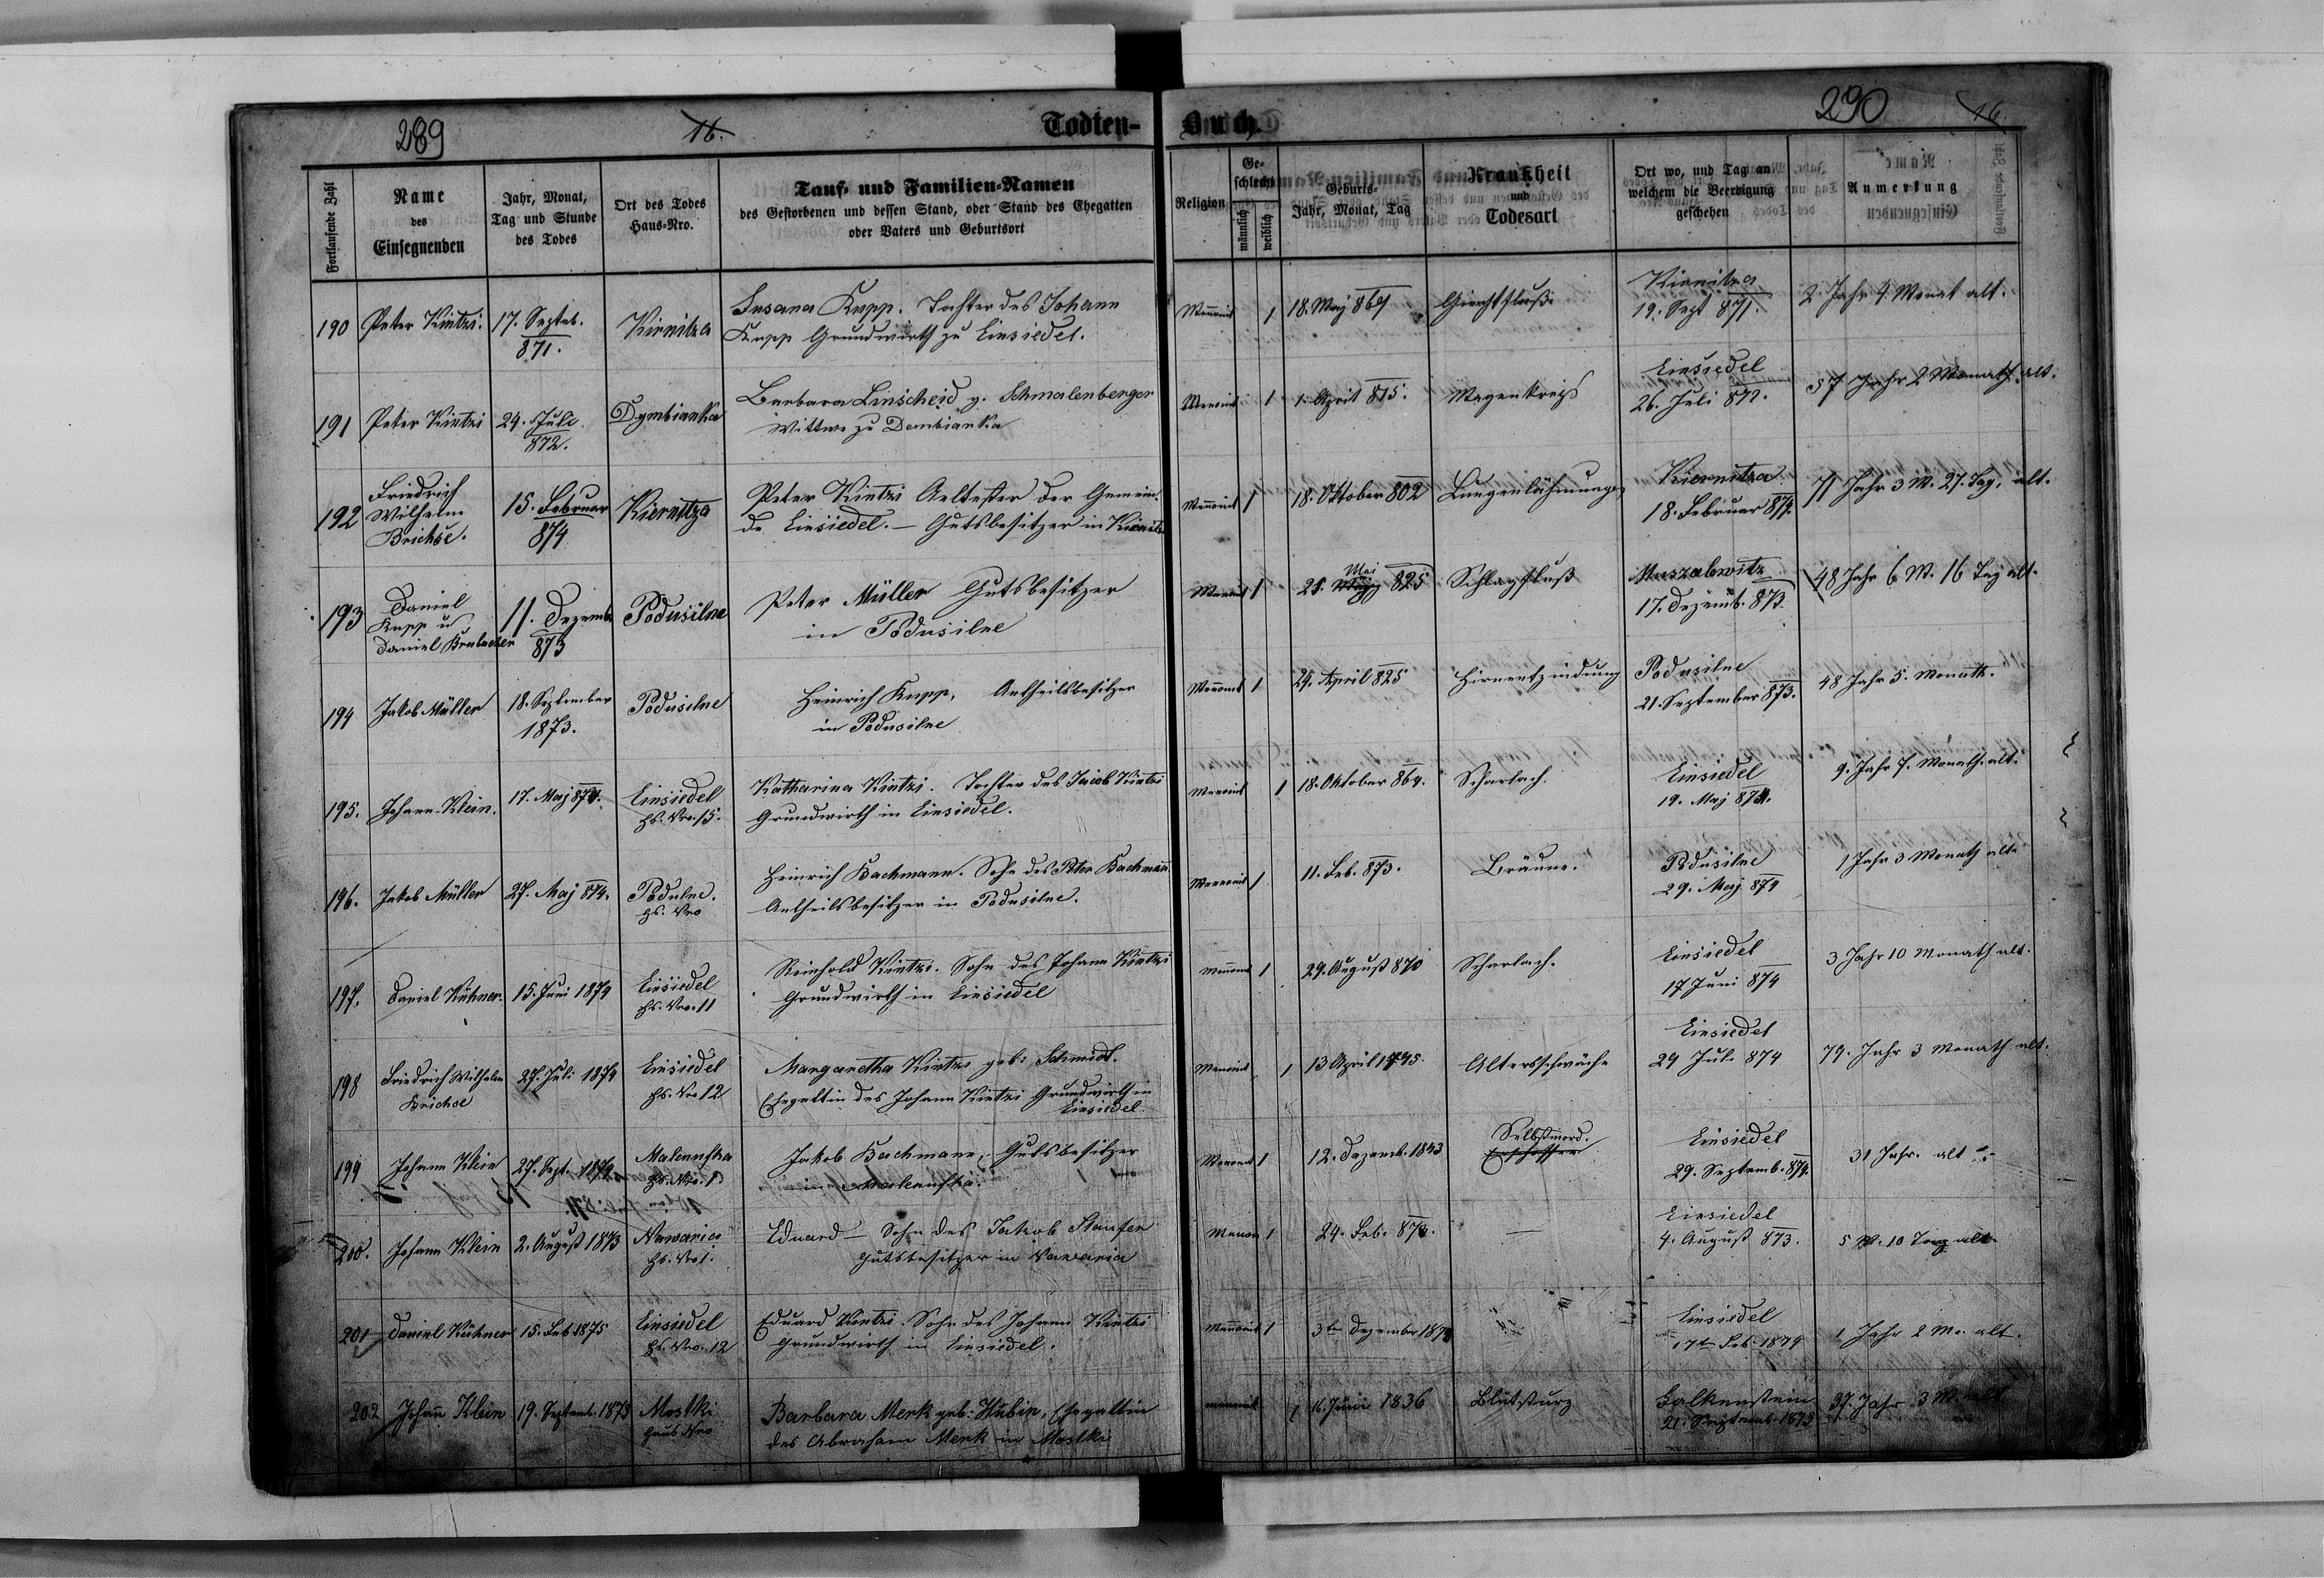 289
16.
Todten-
Buch.
290
16.
Fortlaufende Zahl
Name
des
Einsegnenden
Jahr, Monat,
Tag und Stunde
des Todes
Ort des Todes
Haus-Nro.
Tauf- und Familien-Namen
des Gestorbenen und dessen Stand, oder Stand des Ehegatten
oder Vaters und Geburtsort
Religion
Ge-
schlecht
männlich
weiblich
Geburts-
Jahr, Monat, Tag
Krankheit
und
Todesart
Ort wo, und Tag an
welchem die Beerdigung
geschehen
Anmerkung
190 Peter Kintzi. 17. Septeb. 871. Kirnitza
Susana Rupp. Tochter des Johann
Rupp Grundwirth zu Einsiedel.
Menonit 1 18. Maj 869 Kirnitza
19. Sept 871. 2 Jahr 4 Monat alt.
191 Peter Kintzi 24. Juli 872. Dymbianka
Barbara Linscheid g. Schmalenberger
Wittwe zu Dembianka
Menonit 1 1. April 815. Magenkrebs Einsiedel
26. Juli 872. 57 Jahr 2 Monath alt.
192 Friedrich
Wilhelm
Brichse.
15. Februar 874 Kiernitza
Peter Kintzi Aeltester der Gemein-
de Einsiedel. — Gutsbesitzer in
Menonit 1 18. Oktober 802 Lungenlähmung Kiernitza
18. Februar 874. 71 Jahr 3 M. 27. Tag. alt.
193 Daniel
Rupp u
Daniel Brubacher
11. Dezemb. 873 Podusilne
Peter Müller Gutsbesitzer
in Podusilne
Menonit 1 25. Mai 825 Schlagfluß
17. Dezemb. 873. 48 Jahr 6 M. 16 Tag alt.
194 Jakob Müller 18. September
1873. Podusilne
Heinrich Rupp, Antheilsbesitzer
in Podusilne
Menonit 1 24. April 825 Hirnentzindung Podusilne
21. September 873. 48 Jahr 5. Monath.
195. Johann Klein. 17. Maj 874. Einsiedel
Hs. Nro. 15.
Katharina Kintzi. Tochter des Jacob Kintzi
Grundwirth in Einsiedel.
Menonit 1 18. Oktober 864. Scharlach. Einsiedel
19. Maj 874. 9. Jahr 7. Monath. alt.
196. Jakob Müller 27. Maj 874. Podulne.
Hs. Nro
Heinrich Bachmann. Sohn des Peter Bachmañ
Antheilsbesitzer in Podusilne.
Menonit 1 11. Feb. 873. Bräune. Podusilne
29. Maj 874 1 Jahr 3 Monath alt
197. Daniel Kühner. 15. Juni 1874 Einsiedel
Hs. Nro. 11
Reinhold Kintzi. Sohn des Johann Kintzi
Grundwirth in Einsiedel
Menonit 1 29. August 870 Scharlach. Einsiedel
17 Juni 874 3 Jahr 10 Monath alt.
198 Friedrich Wilhelm
Brichse
27. Juli 1874 Einsiedel
Hs. Nro 12
Margaretha Kintzi geb: Schmidt.
Ehegattin des Johann Kintzi Grundwirth in
Einsiedel
Menonit 1 13 April 1795. Altersschwäche Einsiedel
29 Juli 874 79. Jahr 3 Monath alt.
199 Johann Klein 27. Sept. 1874
Hs. Nro. 1
Jakob Bachmann, Gutsbesitzer
in
Menonit 1 12. Dezemb. 1843 Selbstmord.
Einsiedel
29. Septemb. 874. 31 Jahr. alt
200. Johann Klein 2. August 1873 Nawaria
Hs. Nro 1.
Eduard — Sohn des Jakob Staufer
Gutsbesitzer in Nawaria
Menon 1 24. Feb. 873. — Einsiedel
4. August 873. 5 M. 10 Tag alt.
201 Daniel Kühner 15. Feb 1875 Einsiedel
Hs. Nro. 12
Eduard Kintzi. Sohn des Johann Kintzi
Grundwirth in Einsiedel.
Menonit 1 3ten Dezember 1873 Einsiedel
17ten Feb. 1874 1 Jahr 2 Mo. alt.
202 Johañ Klein 19. Septemb. 1873 Mostki
Haus Nro
Barbara Merk geb: Hubin, Ehegattin
des Abraham Merk in Mostki
menonit 1 16. Juni 1836 Blutsturz Falkenstein
21. Septemb. 1873 37. Jahr 3 M. alt